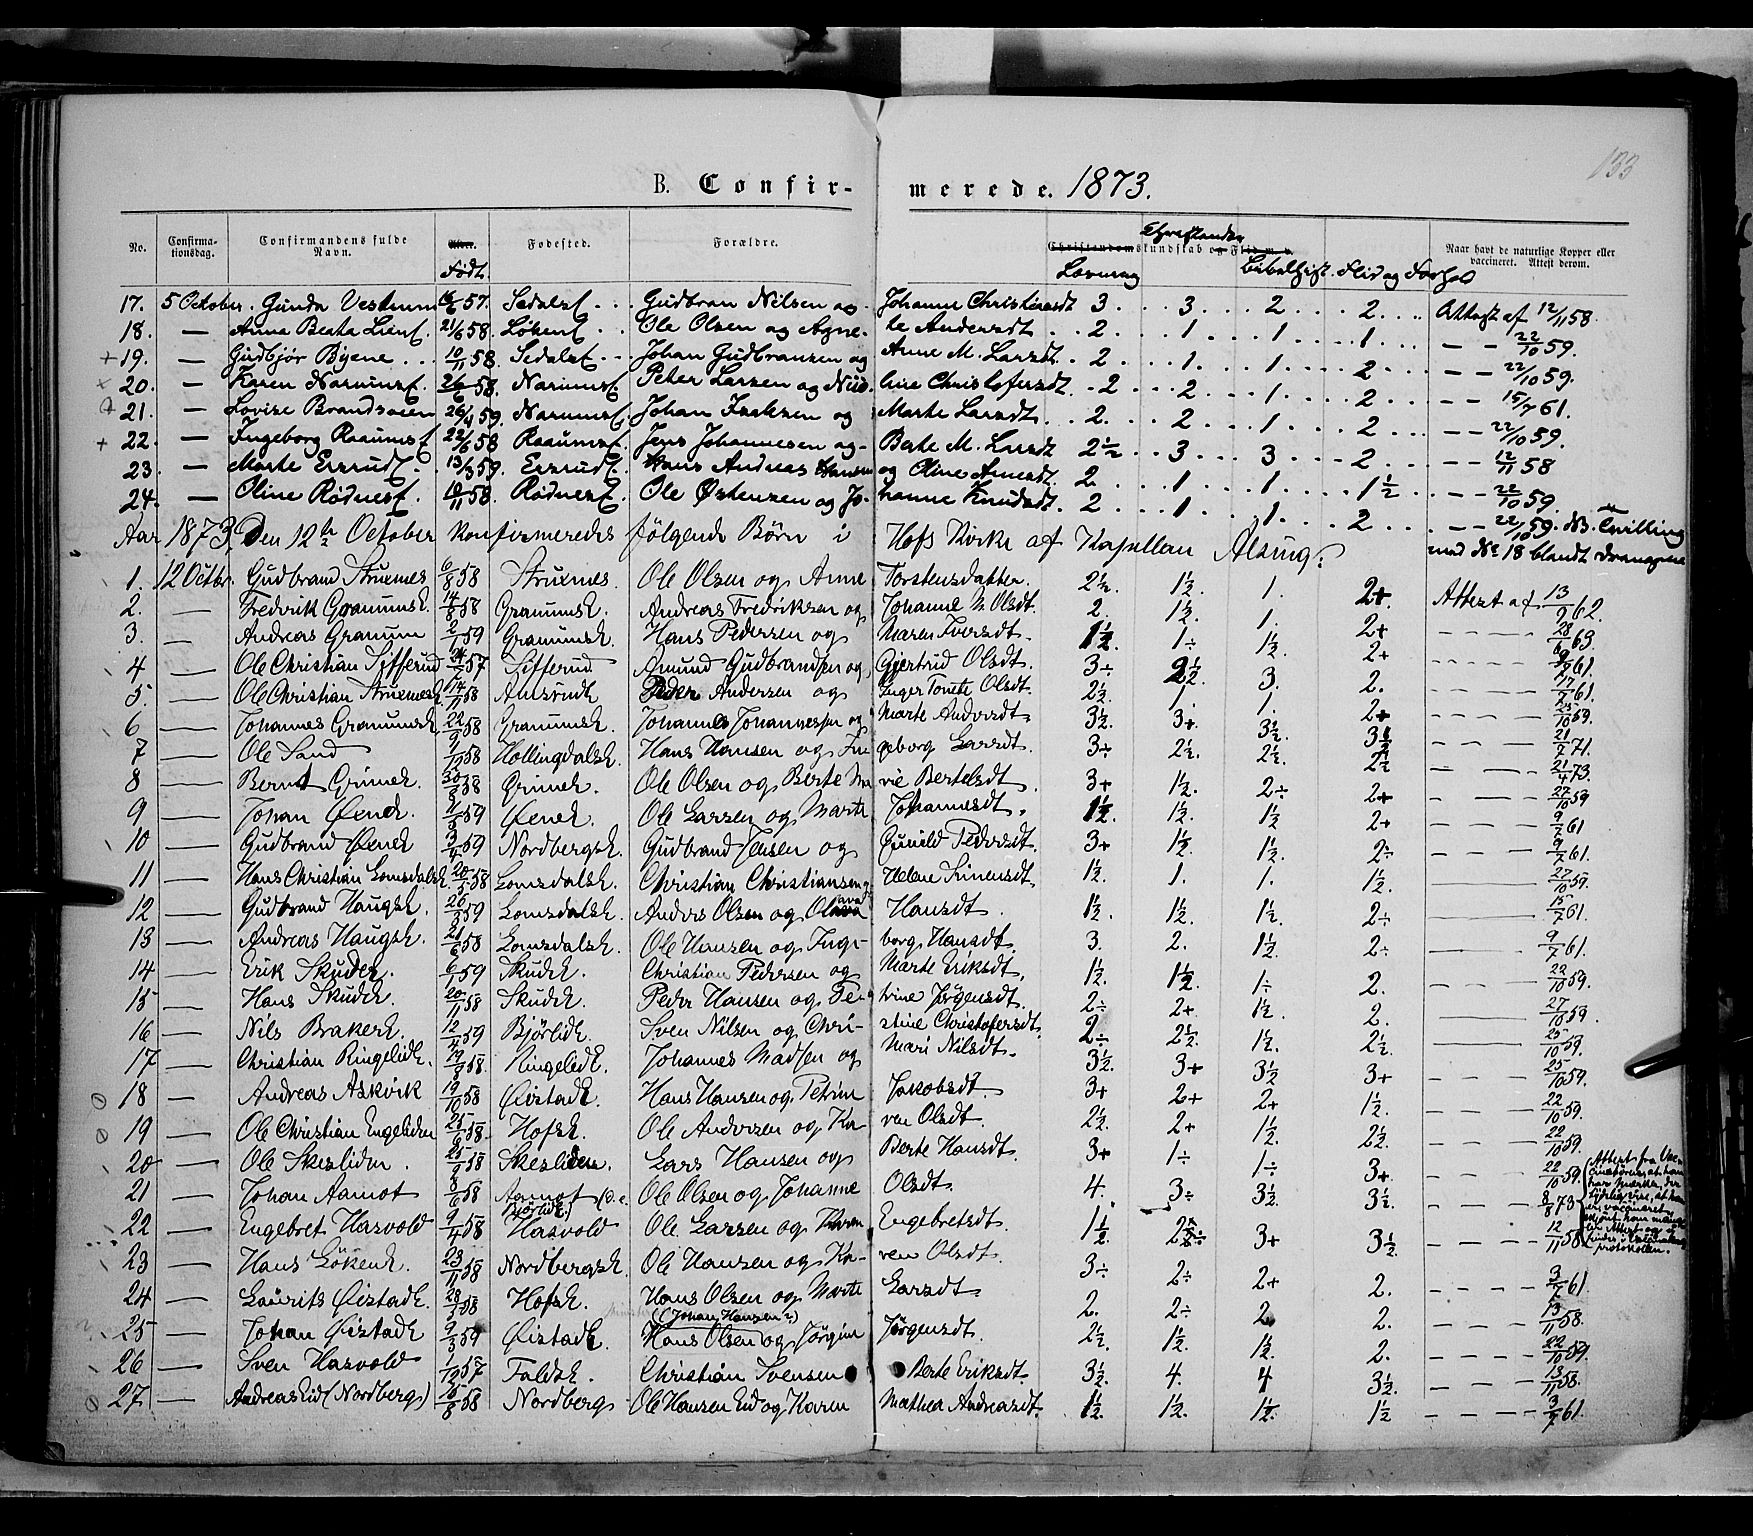 133
B. Confir- merede. 1873.
No. Confirma-tionsdag. Confirmandens fulde Navn. Alder. Født. Fødested. Forældre. Christendomskundskab og Flid Christendom Læsning Bibelhist. Flid og Forhold Naar havt de naturlige Kopper eller vaccineret. Attest derom.
17. 5 October. Gunda Vestrum 57. Sedalsf. Gudbran Nilsen og Johanne Christiansdt 3 3 2 2 Attest af 12/11 58.
18. — Anna Beata Lienf. 21/6 58. Løkenf. Ole Olsen og Agne-te Andersdt. 2. 1 1 1 — — 22/10 59.
+ 19. — Gudbjør Byene 10/11 58. Sedalsf. Johan Gudbransen og Anne M. Larsdt. 2 1. 1 2 — — 22/10 59.
x 20. — Karen Narumsf. 26/6 58. Narumsf. Peter Larsen og Christofersdt. 2 2 1. 2 — — 15/7 61.
21. — Lovise Brandsveen 26/4 59. Narumsf. Johan Isaksen og Marte Larsdt. 2. 2 1 2 — — 22/10 59.
+ 22. — Ingeborg Raaumsf 22/6 58 Raaumsf. Jens Johannesen og Berte M. Larsdt 2½ 3 3 2 — — 12/11 58
23. — Marte Ersrudf. 13/3 59. Ersrudf. Hans Andreas Hansen og Oline Arnesdt. 2. 1 1 1½ — — 22/10 59.
24. — Oline Rødnesf. 10/11 58. Rødnesf. Ole Østensen og Jo-hanne Knudsdt. 2 1 1. 2 — — 22/10 59. NB. Tvilling
Aar 1873, Den 12te October konfirmeredes følgende Børn i Hofs Kirke af Kapellan Alsing: med No 18 blandt Drengene
1. 12 Octbr. Gudbrand Struxnes 6/8 58 Struxnes. Ole Olsen og Anne Torstensdatter. 2½. 1½ 1. 2+. Attest af 13/9 62.
2. — Fredrik Granumsk. 14/8 58 Granumsk. Andreas Fredriksen og Johanne M. Olsdt. 2. 1½. 1. 2+ — — — 28/6 63.
3. — Andreas Granum 2/1 59 Granumsk. Hans Pedersen og Maren Iversdt. 1½. 1÷ 1½. 2+ — — — 9/7 61.
4 — Ole Christian Sifferud 57 Sifferud Amund Gudbrandsen og Gjertrud Olsdt. 3÷ 2½. 3. 2. — — — 17/7 61.
5. — Ole Christian Struxnesk. 14/11 58 Amsrudk Peder Andersen og Inger Torete Olsdt. 2½. 1. 1. 2+ — — — 59.
6 — Johannes Granumsk 22/9 58 Granumsk. Johannes Johannessen og Marte Andersdt. 3½. 3+ 3½. 3½ — — — 21/7 71.
7 — Ole Sand 1/12 58 Hollingdalsk. Hans Hansen og In-geborg Larsdt. 3÷ 2½. 2½. 2½ — — — 21/4 73.
8 — Bernt Grimek 30/8 58 Grimek. Ole Olsen og Berte Ma-rie Bertelsdt 3+ 1½. 2÷ 2+ — — — 27/10 59
9 — Johan Øenek. 11/5 59 Øenek. Ole Larsen og Marte Johannesdt. 1½. 1½. 1½ 2+ — — — 9/7 61
10 — Gudbrand Øenek 3/4 59 Nordbergsk. Gudbrand Jensen og Gunild Pedersdt. 3+ 1½. 1½. 2÷ — — — 9/7 61.
11 — Hans Christian Lomsdalsk. 20/5 58 Lomsdalsk. Christian Christiansen og Helene Simensdt. 1½. 1. 1. 1½. — 27/10 59.
12 — Gudbrand Haugsk. 26/3 59 Lomsdalsk. Anders Olsen og Olava Hansdt. 1½. 1½. 1½. 2÷ — 15/7 61.
13 — Andreas Haugsk. 21/6 58 Lomsdalsk. Ole Hansen og Inge-borg Hansdt. 3. 2. 1½ 2÷ — 9/7 61.
14 — Erik Skudek. 6/1 59 Skudek. Christian Pedersen og Marte Eriksdt. 1½. 1½ 1÷ 2. — 22/10 59.
15 — Hans Skudek. 20/11 58 Skudek. Peder Hansen og Pe-trine Jørgensdt. 2÷ 2+ 1½. 2. — 27/10 59.
16 — Nils Brakerk. 12/4 59 Bjørlidk. Sven Nilsen og Chri-stine Christofersdt. 2÷ 2½. 1½. 2½. — 25/10 59.
17 — Christian Ringelidk. 19/9 58. Ringelidk. Johannes Madsen og Mari Nilsdt. 3½. 3+ 3½ 3+ — — — 25/10 59.
18 — Andreas Askvik 19/10 58 Øistadk. Hans Hansen og Petrin Jakobsdt. 3+ 2+ 2+ 1½. — — — 22/10 59.
19 — Ole Christian Engeliden 25/6 58. Hofsk. Ole Andersen og Ka-ren Olsdt. 2½. 2+ 1½. 2½. — — — 22/10 59.
20 — Ole Skesliden. 25/9 58 Skesliden. Lars Hansen og Berte Hansdt. 3+ 1÷ 1÷ 3+ — — — 22/10 59.
21 — Johan Aamot 3/6 58 Aamot (v. Bjørlidk) Ole Olsen og Johanne Olsdt. 4. 3÷ 3½. 3½. — — — 8/8 73 Attest fra Vac-cinatøren, at han har Mærker, der tydelig vise, at han er vaccineret, skjønt han mang-ler Attest og ei findes i Vaccinations-protokollen.
22 — Engebret Hasvold 9/4 58 Hasvold Ole Larsen og Karen Engebretsdt. 1½ 3+ 3½. — — — 12/11 58
23 — Hans Løkenk. 23/11 58 Nordbergsk. Ole Hansen og Ka-ren Olsdt. 3÷ 2÷ 2+ 2. — — — 3/7 61.
24 — Laurits Øistadk. 28/3 58 Hofsk. Hans Olsen og Marte Larsdt. 2. 2÷ 2 2. — — — 13/11 58.
25 — Johan Øistadk 9/3 59 Øistadk. (Johan Hansen?) Hans Olsen og Jørgine Jørgensdt. 2½. 1½. 1½. 2. — — — 22/10 59.
26 — Sven Hasvold 1/12 57 Faldsk. Christian Svensen Berte Eriksdt. 3½. 4. 4 3½. — — — 13/11 58.
27 — Andreas Eid (Nordbergs) 15/8 58 Nordberg Ole Hansen Eid og Karen Mathea Andreasdt. 1½. 1½. 1½. 1½ — — — 3/7 61.